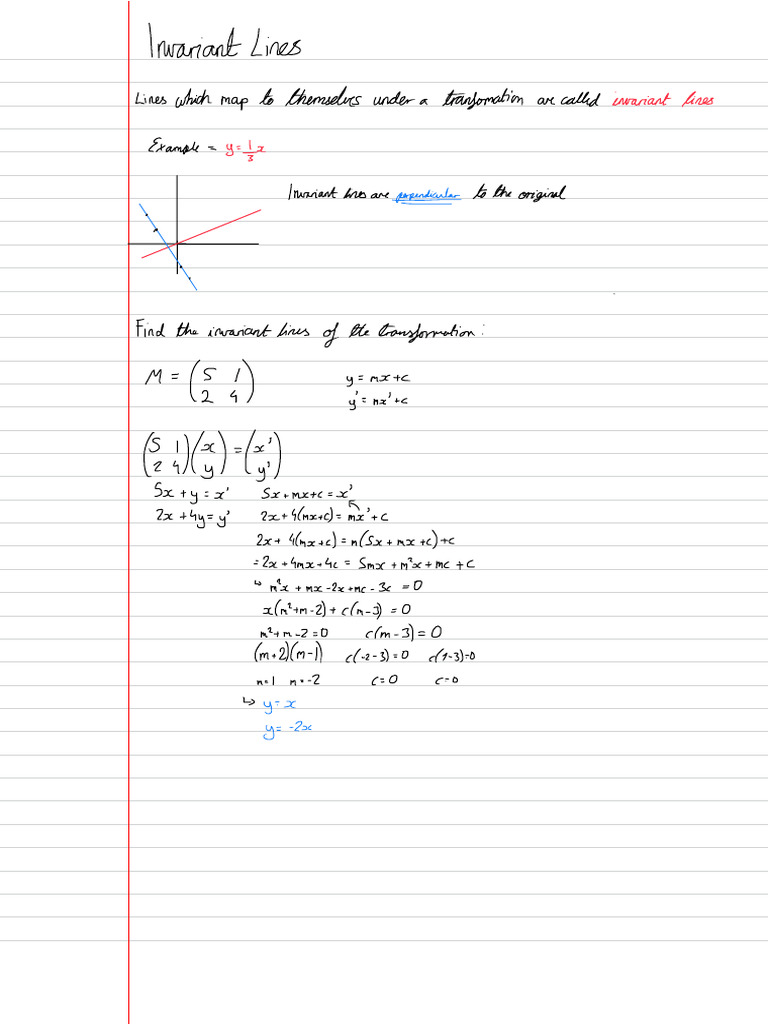 Invariant Lines
Lines which map to themselves under a transfomation are called invariant lines
Example = y = 1/3 x
Invariant lines are perpendicular to the original
Find the invariant lines of the transformation:
M = (5 1
2 4)
y = mx + c
y' = mx' + c
(5 1
2 4)(x
y) = (x'
y')
5x + y = x'
5x + mx + c = x'
2x + 4y = y'
2x + 4(mx + c) = mx' + c
2x + 4(mx + c) = m(5x + mx + c) + c
= 2x + 4mx + 4c = 5mx + m²x + mc + c
↳ m²x + mx - 2x + mc - 3c = 0
x(m² + m - 2) + c(m - 3) = 0
m² + m - 2 = 0 c(m - 3) = 0
(m + 2)(m - 1) c(-2 - 3) = 0 c(1 - 3) = 0
m = 1 m = -2 c = 0 c = 0
↳ y = x
y = -2x